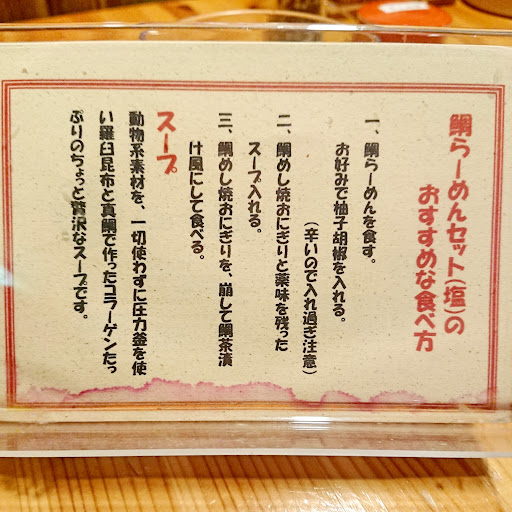 鯛らーめんセット(塩)の
おすすめな食べ方
一、鯛らーめんを食す。
お好みで柚子胡椒を入れる。
(辛いので入れ過ぎ注意)
二、鯛めし焼おにぎりと薬味を残った
スープ入れる。
三、鯛めし焼おにぎりを、崩して鯛茶漬
け風にして食べる。
スープ
動物系素材を、一切使わずに圧力釜を使
い羅臼昆布と真鯛で作ったコラーゲンたっ
ぷりのちょっと贅沢なスープです。